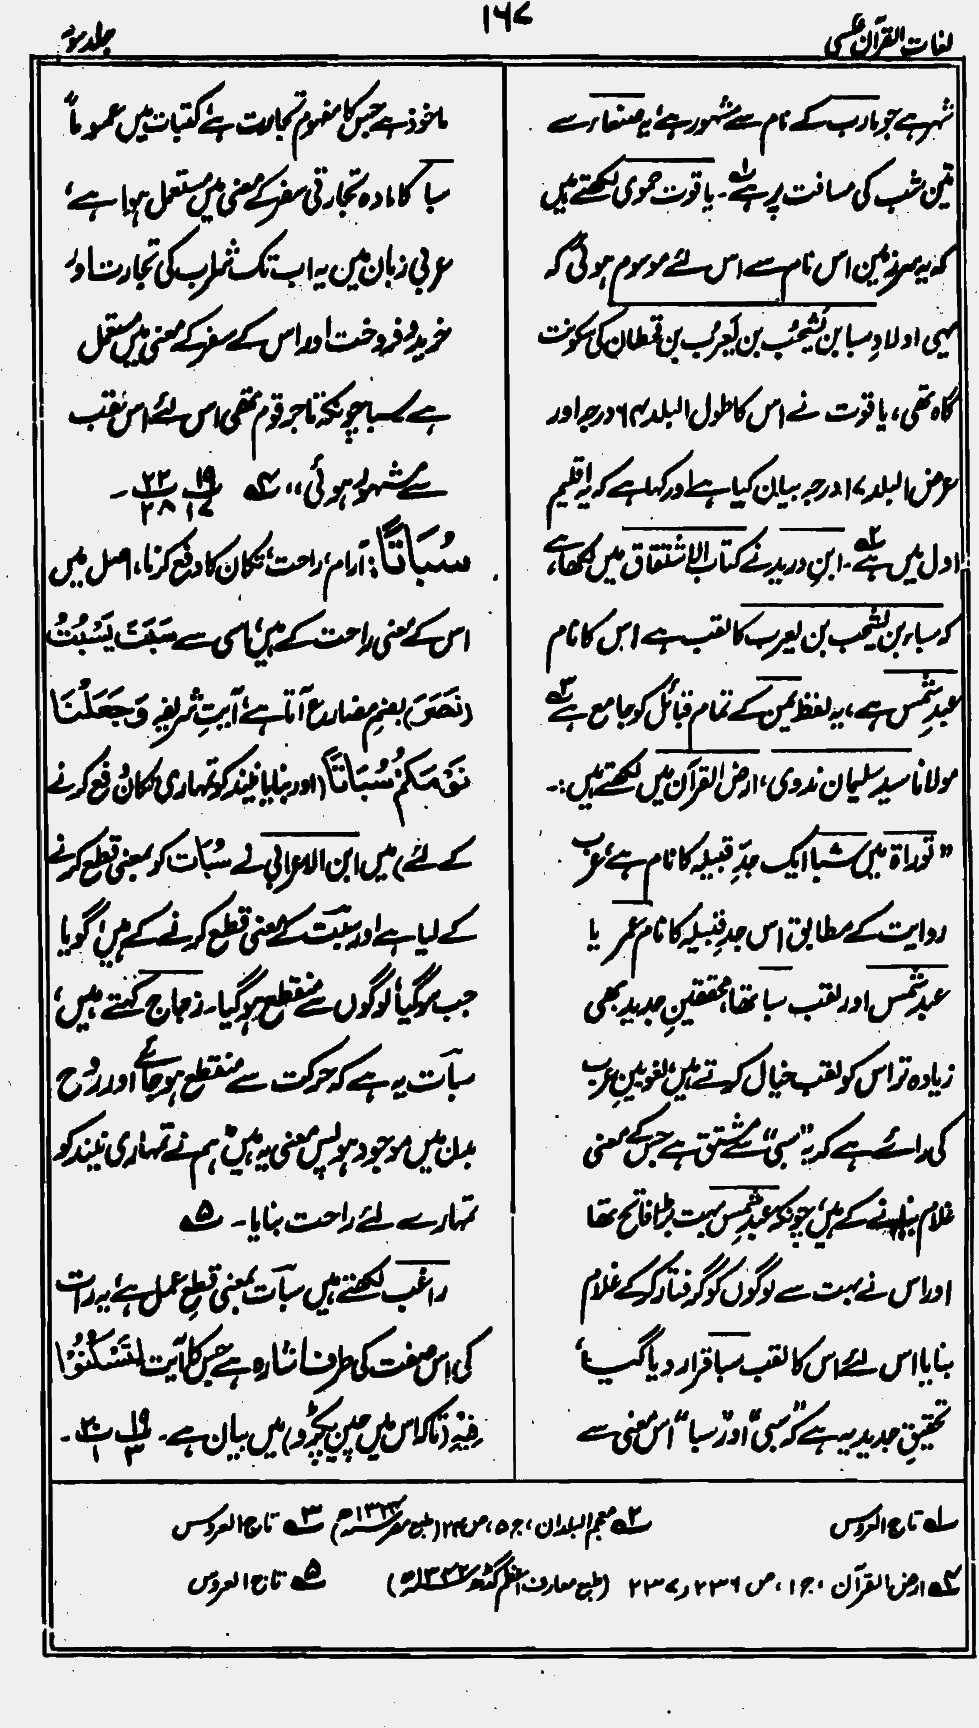 ۱۶۷
لغات القرآن عکسی
جلد سوم
شہر ہے جو مارب کے نام سے مشہور ہے، یہ صنعاء سے
تین شب کی مسافت پر ہے ؎۱۔ یاقوت حموی لکھتے ہیں
کہ یہ سرزمین اس نام سے اس لئے موسوم ہوئی کہ
یہی اولادِ سبا بن یَشْجُب بن یَعرُب بن قحطان کی سکونت
گاہ تھی، یاقوت نے اس کا طول البلد ۶۴ درجہ اور
عرض البلد ۱۷ درجہ بیان کیا ہے اور کہا ہے کہ یہ اقلیم
اول میں ہے ؎۲۔ ابن درید نے کتاب الاشتقاق میں لکھا ہے،
کہ سباء بن یشجب بن یعرب کا لقب ہے اس کا نام
عبدِ شمس ہے، یہ لفظ یمن کے تمام قبائل کو جامع ہے ؎۳
مولانا سید سلیمان ندوی، ارض القرآن میں لکھتے ہیں:۔
”توراۃ میں شبا ایک جدِّ قبیلہ کا نام ہے، عرب
روایت کے مطابق اس جدِ قبیلہ کا نام عمر یا
عبدِ شمس اور لقب سبا تھا، محققینِ جدید بھی
زیادہ تر اس کو لقب خیال کرتے ہیں، لغویینِ عرب
کی رائے ہے کہ یہ ”سبی“ سے مشتق ہے جس کے معنی
غلام بنانے کے ہیں، چونکہ عبدِ شمس بہت بڑا فاتح تھا
اور اس نے بہت سے لوگوں کو گرفتار کر کے غلام
بنایا اس لئے اس کا لقب سبا قرار دیا گیا،
تحقیقِ جدید یہ ہے کہ ”سبی“ اور ”سبا“ اس معنی سے
ماخوذ ہے جس کا مفہوم تجارت ہے، کتبات میں عموماً
سبا کا مادہ تجارتی سفر کے معنی میں مستعمل ہوا ہے،
عربی زبان میں یہ اب تک شراب کی تجارت اور
خرید و فروخت اور اس کے سفر کے معنی میں مستعمل
ہے سبا چونکہ تاجر قوم تھی اس لئے اس لقب
سے مشہور ہوئی“، ؎۴ ۱۹/۱۷ ۲۲/۲۸۔
سُبَاتًا: آرام، راحت، تکان کا دفع کرنا، اصل میں
اس کے معنی راحت کے ہیں، اسی سے سَبَتَ یَسْبُتُ
(نَصَرَ) بضمِ مضارع آتا ہے، آیتِ شریفہ وَجَعَلْنَا
نَوْمَکُمْ سُبَاتًا (اور بنایا نیند کو تمہاری تکان رفع کرنے
کے لئے) میں ابن الاعرابی نے سُبات کو بمعنی قطع کرنے
کے لیا ہے اور سبت کے معنی قطع کرنے کے ہیں، گویا
جب سو گیا، لوگوں سے منقطع ہو گیا۔ زجاج کہتے ہیں،
سبات یہ ہے کہ حرکت سے منقطع ہو جائے اور رُوح
بدن میں موجود ہو پس معنی یہ ہیں ”ہم نے تمہاری نیند کو
تمہارے لئے راحت بنایا۔ ؎۵
راغب لکھتے ہیں سبات بمعنی قطع عمل ہے، یہ رات
کی اس صفت کی طرف اشارہ ہے جس کا آیت لِتَسْکُنُوْا
فِیْہِ (تاکہ اس میں چین پکڑو) میں بیان ہے۔ ۱۹/۳ ۳۰/۱۔
؎۱ تاج العروس
؎۲ معجم البلدان، ج ۵، ص ۲۴ (طبع مصر ۱۳۲۴ھ)
؎۳ تاج العروس
؎۴ ارض القرآن، ج ۱، ص ۲۳۶ و ۲۳۷ (طبع معارف اعظم گڈھ ۱۳۳۲ھ)
؎۵ تاج العروس